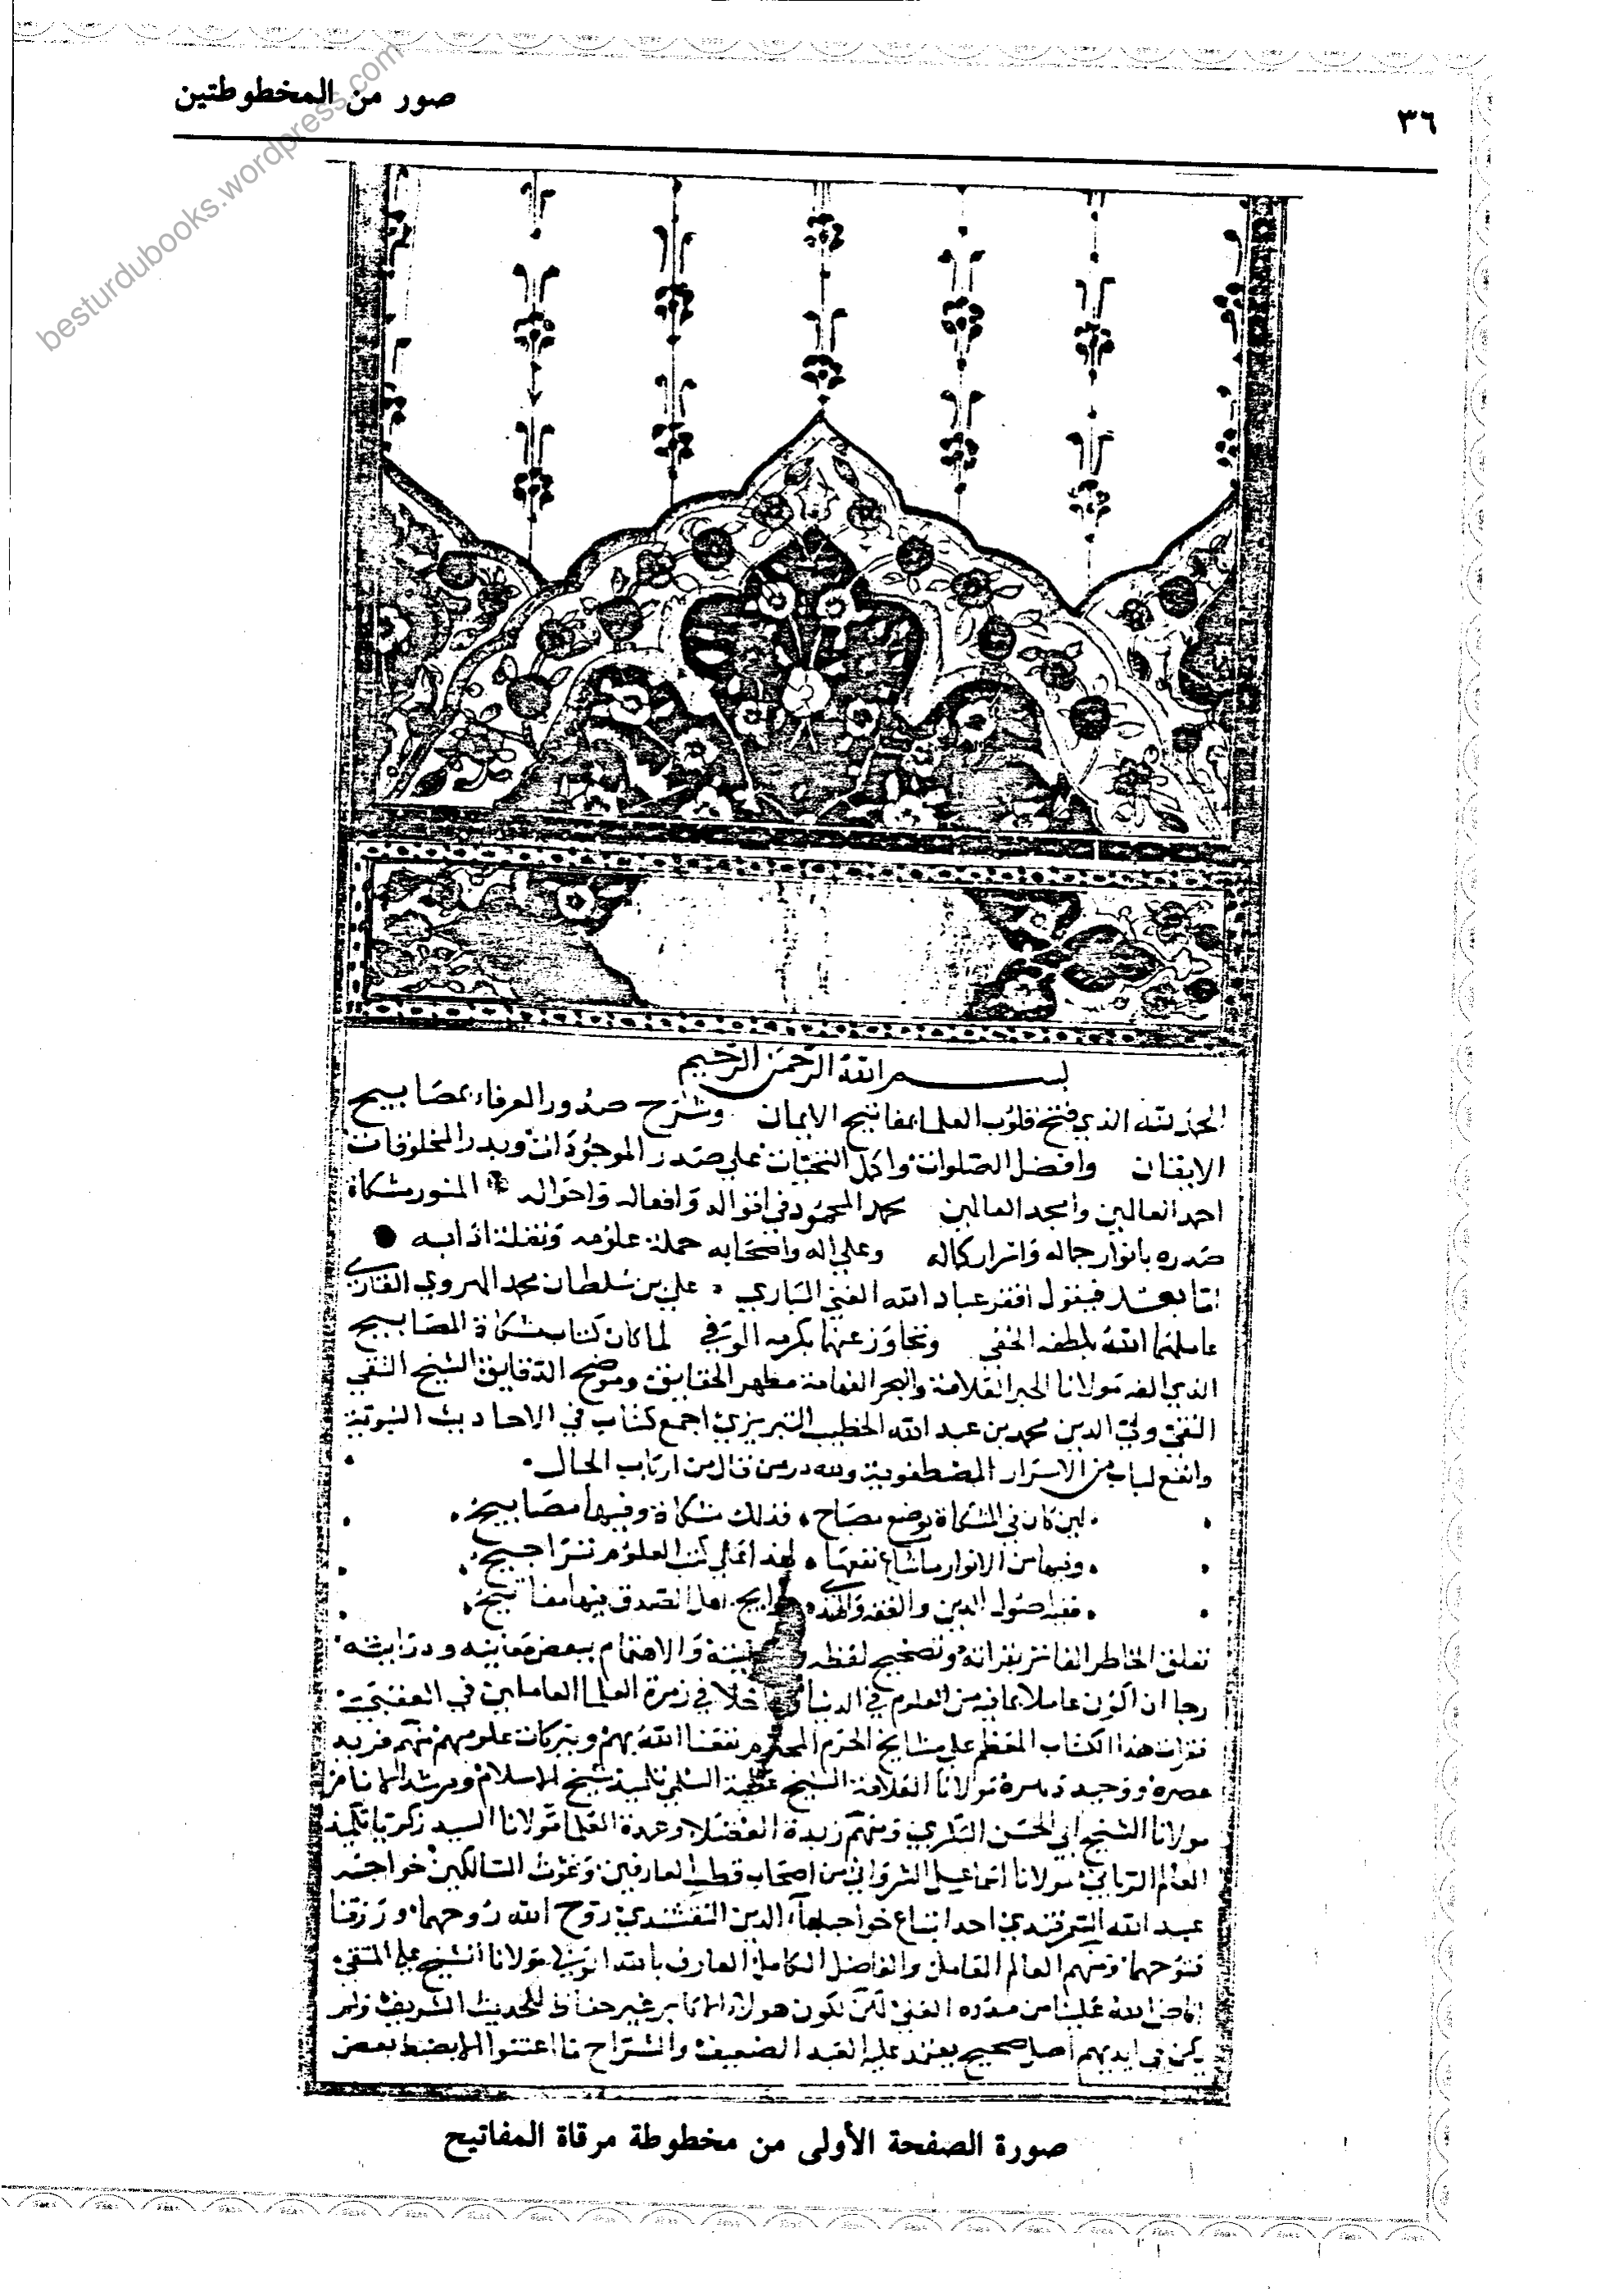 ٣٦
صور من المخطوطتين
besturdubooks.wordpress.com
بسم الله الرحمن الرحيم
الحمد لله الذي فتح قلوب العلما بمفاتيح الايمان وشرح صدور العرفاء بمصابيح
الايقان وافضل الصلوات واكمل التحيات على صدر الموجودات وبدر المخلوقات
احمد العالمين وامجد العالمين محمد المحمود في اقواله وافعاله واحواله المنور مشكاة
صدره بانوار جماله واسرار كماله وعلى اله واصحابه حملة علومه ونقلة ادابه
اما بعد فيقول افقر عباد الله الغني الباري علي بن سلطان محمد الهروي القاري
عاملهما الله بلطفه الخفي وتجاوز عنهما بكرمه الوفي لما كان كتاب مشكاة المصابيح
الذي الفه مولانا الحبر العلامة والبحر الفهامة مظهر الحقايق وموضح الدقايق الشيخ التقي
النقي ولي الدين محمد بن عبد الله الخطيب التبريزي اجمع كتاب في الاحاديث النبوية
وانفع لباب من الاسرار المصطفوية ولله در من قال من ارباب الحال
لين كان في المشكاة يوضع مصباح فذلك مشكاة وفيها مصابيح
وفيها من الانوار ما شاع نفعها لهذا على كتب العلوم تراجيح
ففيه اصول الدين والفقه والهدى حوايج اهل الصدق فيها مفاتيح
تعلق الخاطر الفاتر بقراته وتصحيح لفظه والاهتمام ببعض معانيه ودرايته
رجا ان اكون عاملا بما فيه من العلوم في الدنيا داخلا في زمرة العلما العاملين في العقبى
فقرات هذا الكتاب المعظم على مشايخ الحرم المحترم نفعنا الله بهم وببركات علومهم منهم فريد
عصره ووحيد دهره مولانا العلامة الشيخ عطية السلمي تلميذ شيخ الاسلام ومرشد الانام
مولانا الشيخ ابي الحسن البكري ومنهم زبدة الفضلا وعمدة العلما مولانا السيد زكريا تلميذ
العالم الرباني مولانا اسماعيل الشرواني من اصحاب قطب العارفين وغوث السالكين خواجه
عبيد الله السمرقندي احد اتباع خواجه بهآ الدين النقشبندي روح الله روحهما ورزقنا
فتوحهما ومنهم العالم العامل والفاضل الكامل العارف بالله الولي مولانا الشيخ علي المتقي
افاض الله علينا من مدده العلي لكن لكون هولاء الاكابر غير حفاظ للحديث الشريف ولم
يكن في ايديهم اصل صحيح يعتمد عليه العبد الضعيف والشراح ما اعتنوا الا بضبط بعض
صورة الصفحة الأولى من مخطوطة مرقاة المفاتيح